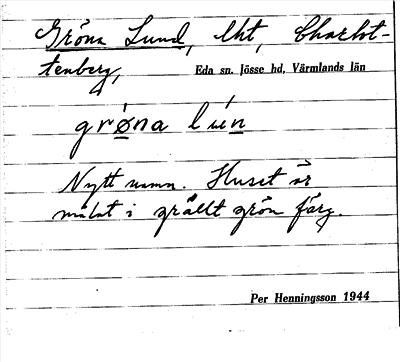 Gröna Lund, lht, Charlot-
tenberg, Eda sn. Jösse hd, Värmlands län
grǿ̱na lúṉ
Nytt namn. Huset är
målat i grällt grön färg.
Per Henningsson 1944